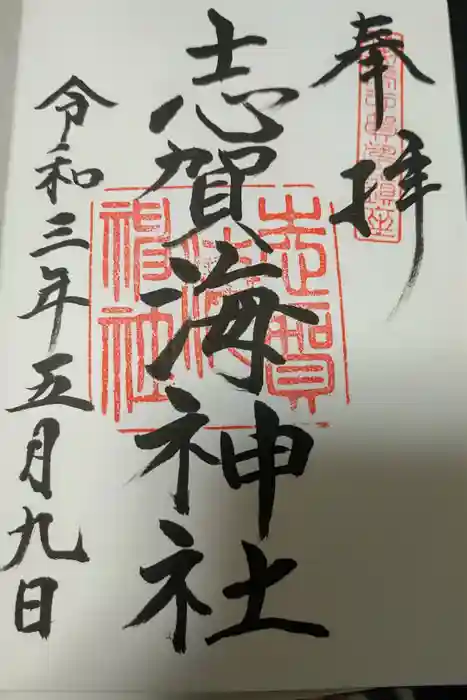 奉拝
志賀海神社
令和三年五月九日
志賀
海神社